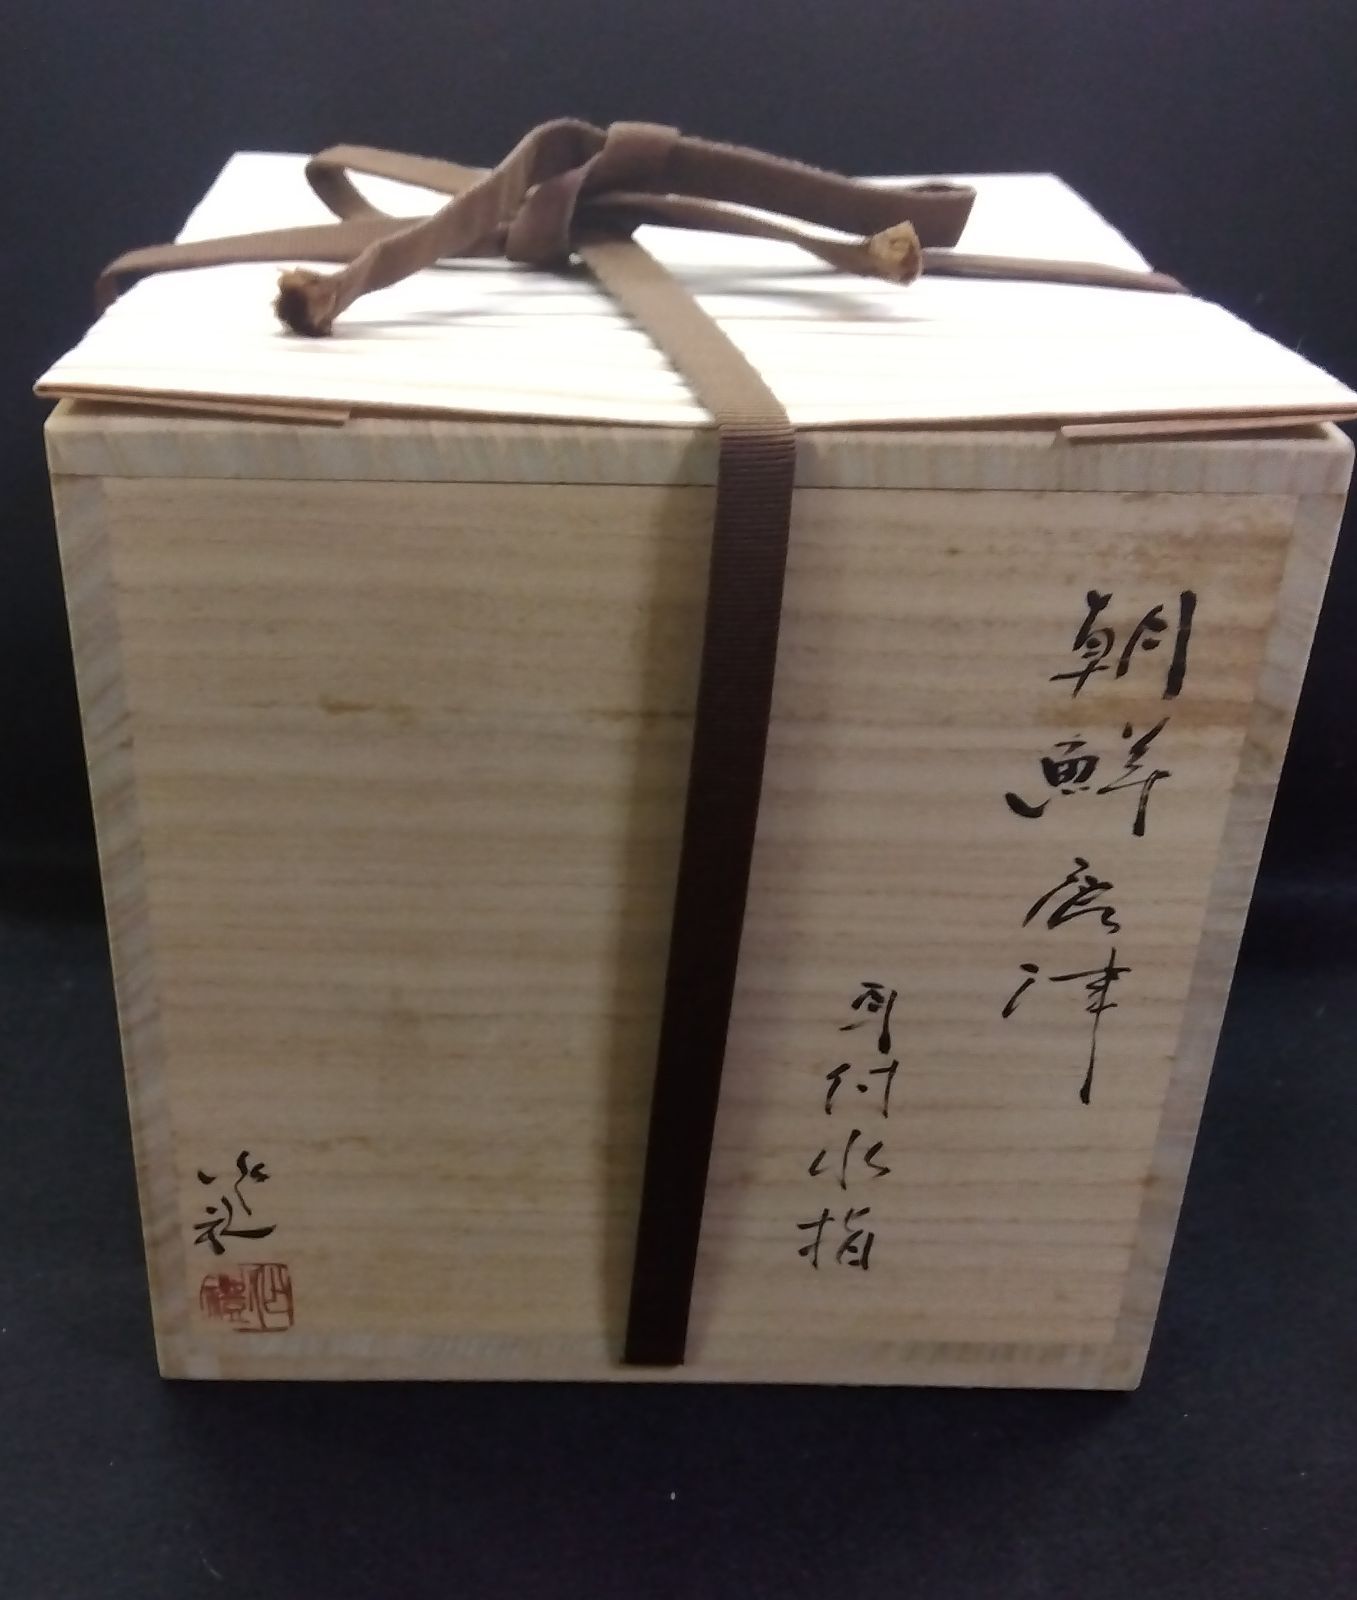 朝鮮唐津
耳付水指